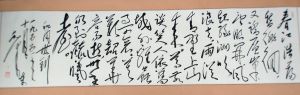 春江浩荡
暂徘徊
又踏层峰望
眼开风起绿洲吹
浪去雨从
青野上山
来尊前谈
笑人依旧
域外鸡虫
事可哀莫
叹韶华
容易逝卅年
仍到赫曦
台
和周世钊
一九五五年